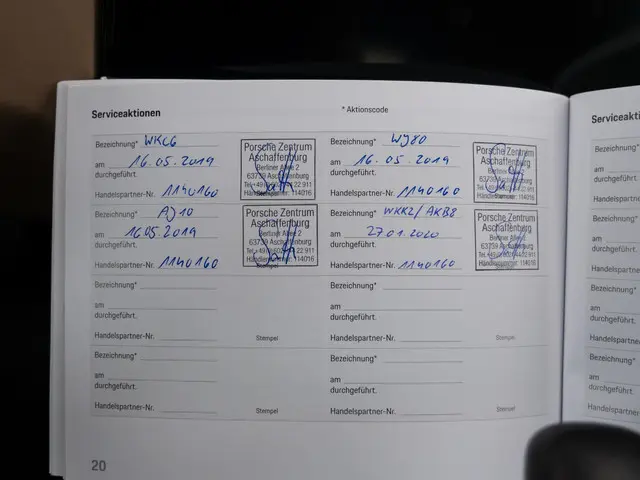 Serviceaktionen
* Aktionscode
Bezeichnung* WKC6
am 16.05.2019
durchgeführt.
Handelspartner-Nr. 1140160
Porsche Zentrum
Aschaffenburg
Berliner Allee 2
63739 Aschaffenburg
Bezeichnung* WJ80
am 16.05.2019
durchgeführt.
Handelspartner-Nr. 1140160
Porsche Zentrum
Aschaffenburg
Berliner Allee 2
63739 Aschaffenburg
Bezeichnung* AJ10
am 16.05.2019
durchgeführt.
Handelspartner-Nr. 1140160
Porsche Zentrum
Aschaffenburg
Berliner Allee 2
63739 Aschaffenburg
Bezeichnung* WKK2/AKB8
am 27.01.2020
durchgeführt.
Handelspartner-Nr. 1140160
Porsche Zentrum
Aschaffenburg
Berliner Allee 2
63739 Aschaffenburg
Bezeichnung*
am
durchgeführt.
Handelspartner-Nr.
Stempel
Bezeichnung*
am
durchgeführt.
Handelspartner-Nr.
Stempel
Bezeichnung*
am
durchgeführt.
Handelspartner-Nr.
Stempel
Bezeichnung*
am
durchgeführt.
Handelspartner-Nr.
Stempel
20
Serviceakti
Bezeichnung*
am
durchgeführt.
Handelspartne
Bezeichnung*
am
durchgeführt.
Handelspartn
Bezeichnung*
am
durchgeführt.
Handelspartne
Bezeichnung*
am
durchgeführt.
Handelspartne